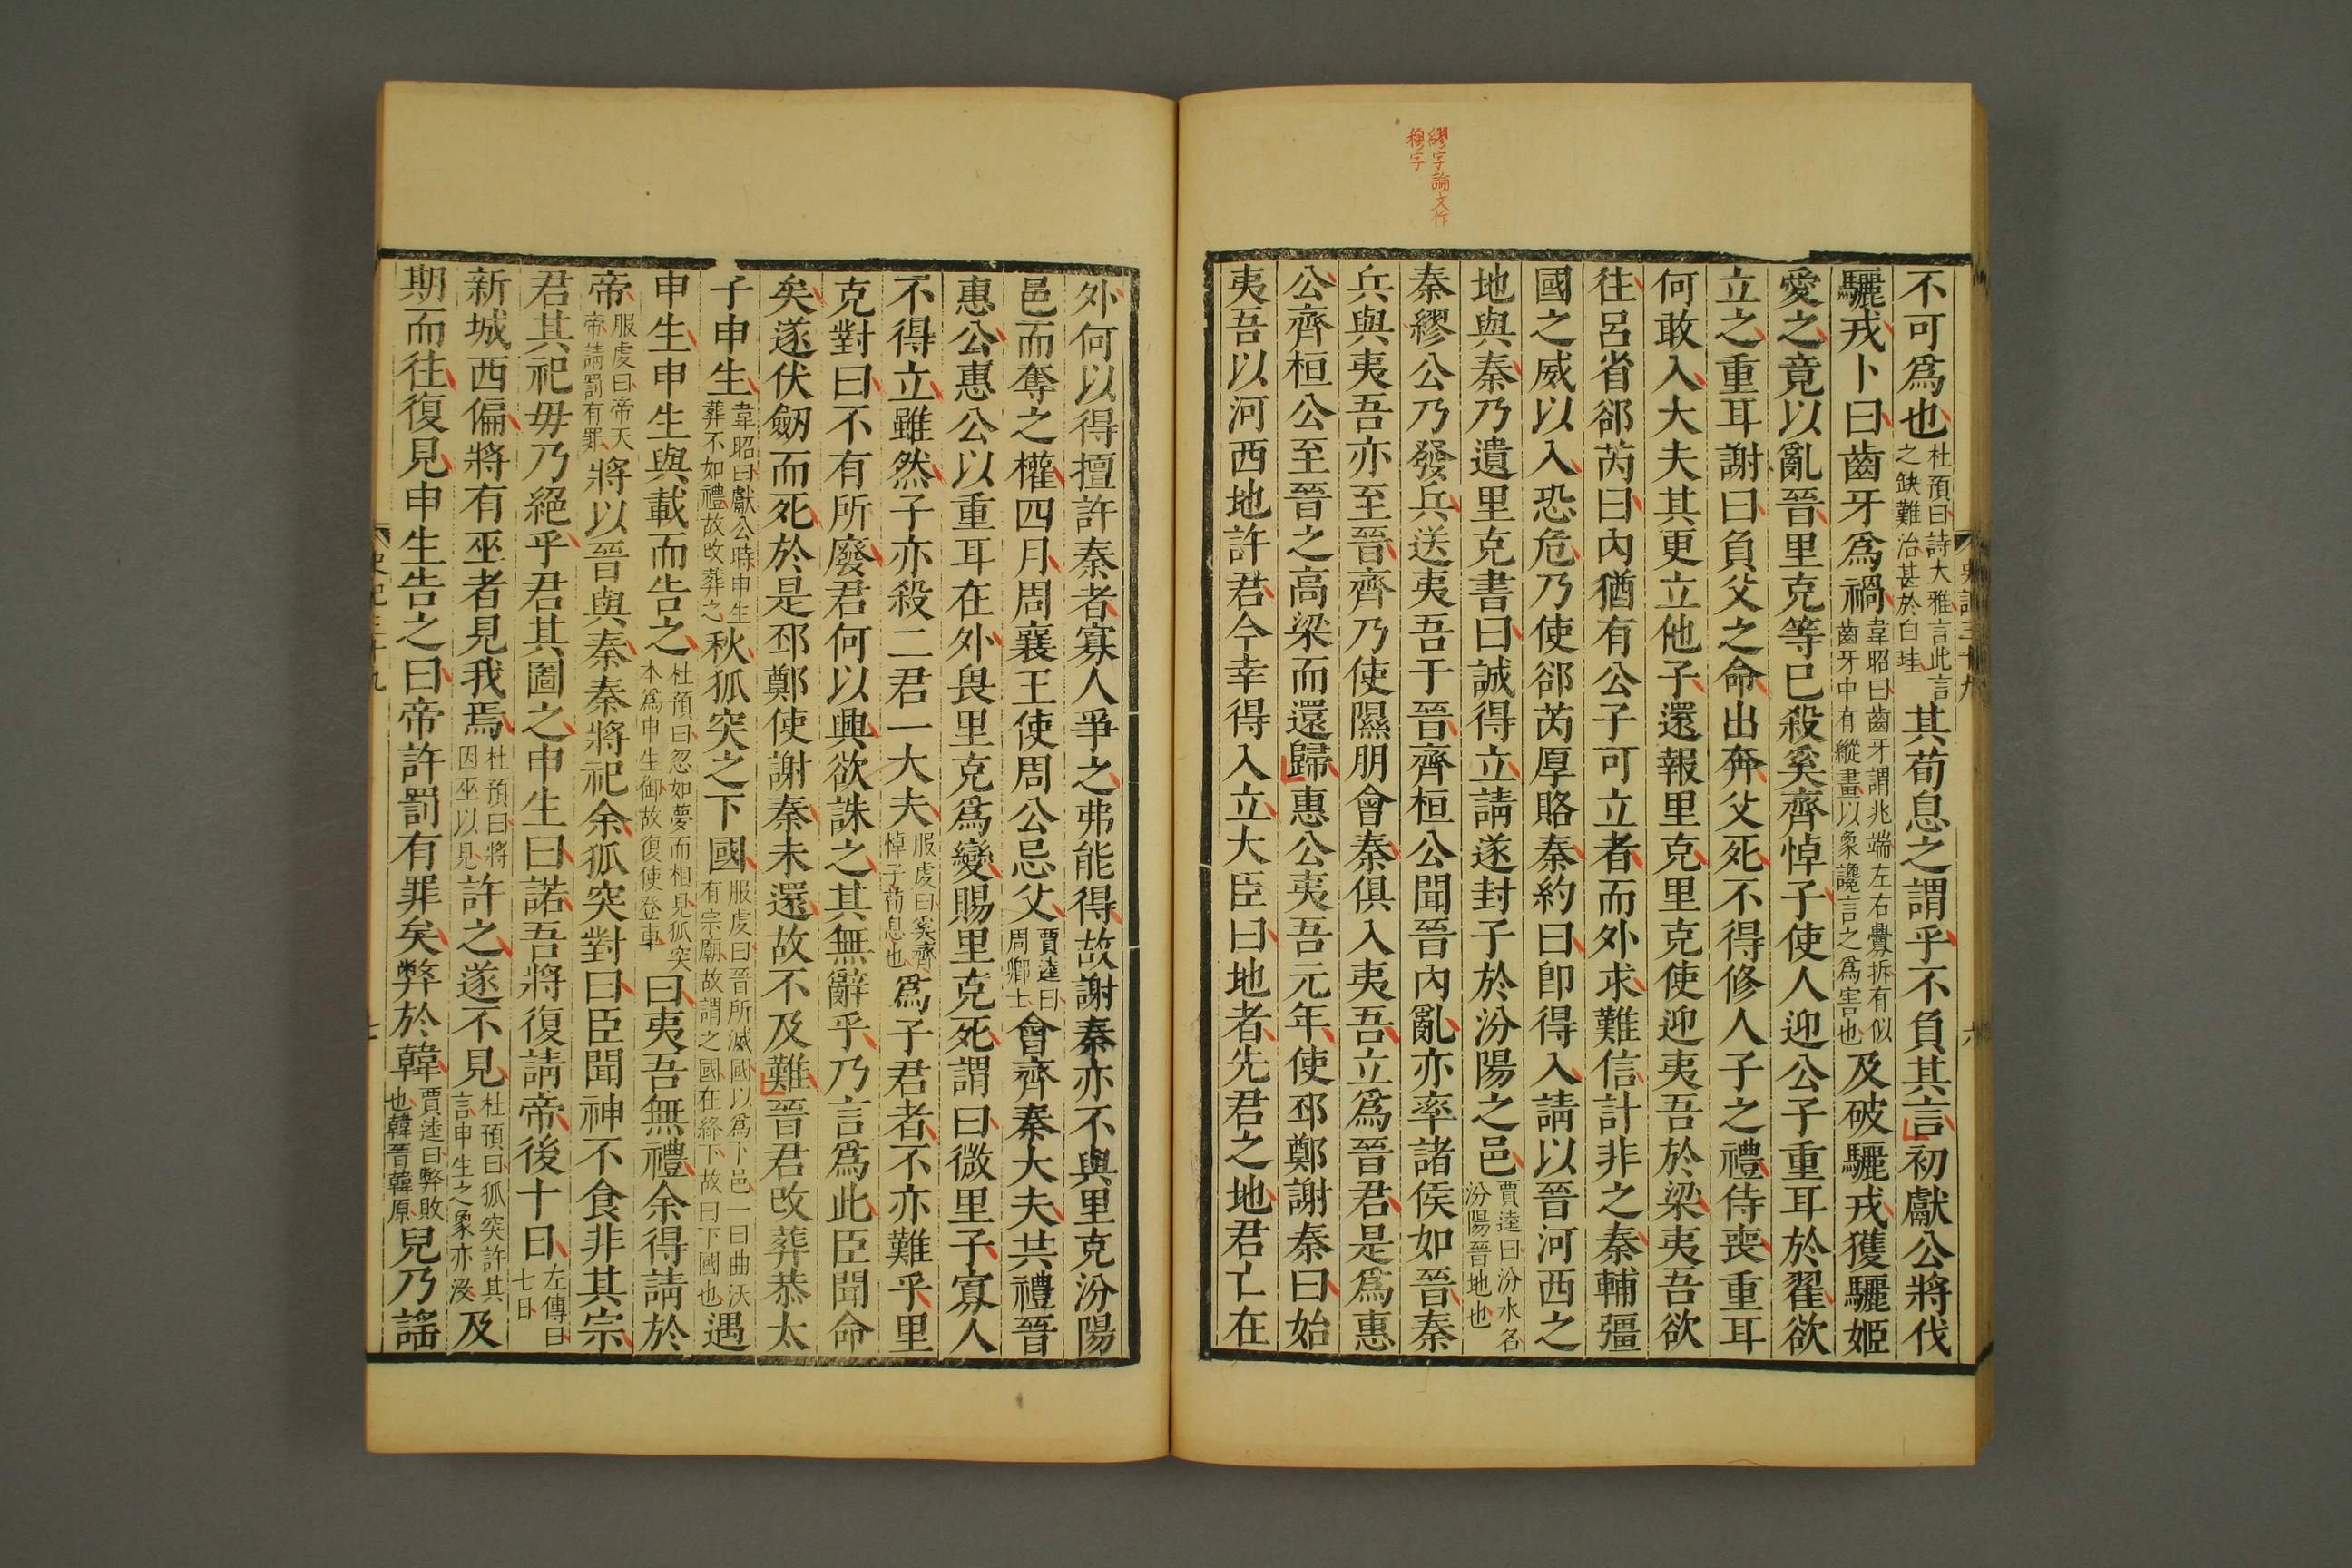 繆字論文作
穆字
不可爲也杜預曰詩大雅言此言之缺難治甚於白珪其荀息之謂乎不負其言初獻公將伐
驪戎卜曰齒牙爲禍韋昭曰齒牙謂兆端左右釁拆有似齒牙中有縱畫以象讒言之爲害也及破驪戎獲驪姬
愛之竟以亂晉里克等已殺奚齊悼子使人迎公子重耳於翟欲
立之重耳謝曰負父之命出奔父死不得修人子之禮侍喪重耳
何敢入大夫其更立他子還報里克里克使迎夷吾於梁夷吾欲
往呂省郤芮曰內猶有公子可立者而外求難信計非之秦輔彊
國之威以入恐危乃使郤芮厚賂秦約曰即得入請以晉河西之
地與秦乃遺里克書曰誠得立請遂封子於汾陽之邑賈逵曰汾水名汾陽晉地也
秦繆公乃發兵送夷吾于晉齊桓公聞晉內亂亦率諸侯如晉秦
兵與夷吾亦至晉齊乃使隰朋會秦俱入夷吾立爲晉君是爲惠
公齊桓公至晉之高梁而還歸惠公夷吾元年使邳鄭謝秦曰始
夷吾以河西地許君今幸得入立大臣曰地者先君之地君亡在
史記三十九
六
外何以得擅許秦者寡人爭之弗能得故謝秦亦不與里克汾陽
邑而奪之權四月周襄王使周公忌父賈逵曰周卿士會齊秦大夫共禮晉
惠公惠公以重耳在外畏里克爲變賜里克死謂曰微里子寡人
不得立雖然子亦殺二君一大夫服虔曰奚齊悼子荀息也爲子君者不亦難乎里
克對曰不有所廢君何以興欲誅之其無辭乎乃言爲此臣聞命
矣遂伏劒而死於是邳鄭使謝秦未還故不及難晉君改葬恭太
子申生韋昭曰獻公時申生葬不如禮故改葬之秋狐突之下國服虔曰晉所滅國以爲下邑一曰曲沃有宗廟故謂之國在絳下故曰下國也遇
申生申生與載而告之杜預曰忽如夢而相見狐突本爲申生御故復使登車曰夷吾無禮余得請於
帝服虔曰帝天帝請罰有罪將以晉與秦秦將祀余狐突對曰臣聞神不食非其宗
君其祀毋乃絕乎君其圖之申生曰諾吾將復請帝後十日左傳曰七日
新城西偏將有巫者見我焉杜預曰將因巫以見許之遂不見杜預曰狐突許其言申生之象亦没及
期而往復見申生告之曰帝許罰有罪矣弊於韓賈逵曰弊敗也韓晉韓原兒乃謠
史記三十九
七